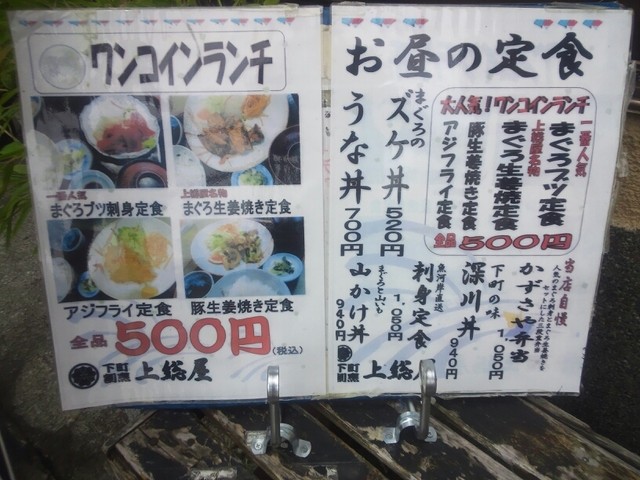 ワンコインランチ
一番人気
まぐろブツ刺身定食
上総屋名物
まぐろ生姜焼き定食
アジフライ定食
豚生姜焼き定食
全品500円
(税込)
下町
割烹
上総屋
お昼の定食
大人気!ワンコインランチ
一番人気
まぐろブツ定食
上総屋名物
まぐろ生姜焼定食
豚生姜焼き定食
アジフライ定食
全品500円
まぐろの
ズケ丼 520円
うな丼 700円
当店自慢
人気のまぐろ刺身とまぐろ生姜焼きを
セットにした二段重弁当
かずさや弁当 1,050円
下町の味
深川丼 940円
魚河岸直送
刺身定食 1,050円
まぐろと山いも
山かけ丼 940円
下町
割烹
上総屋